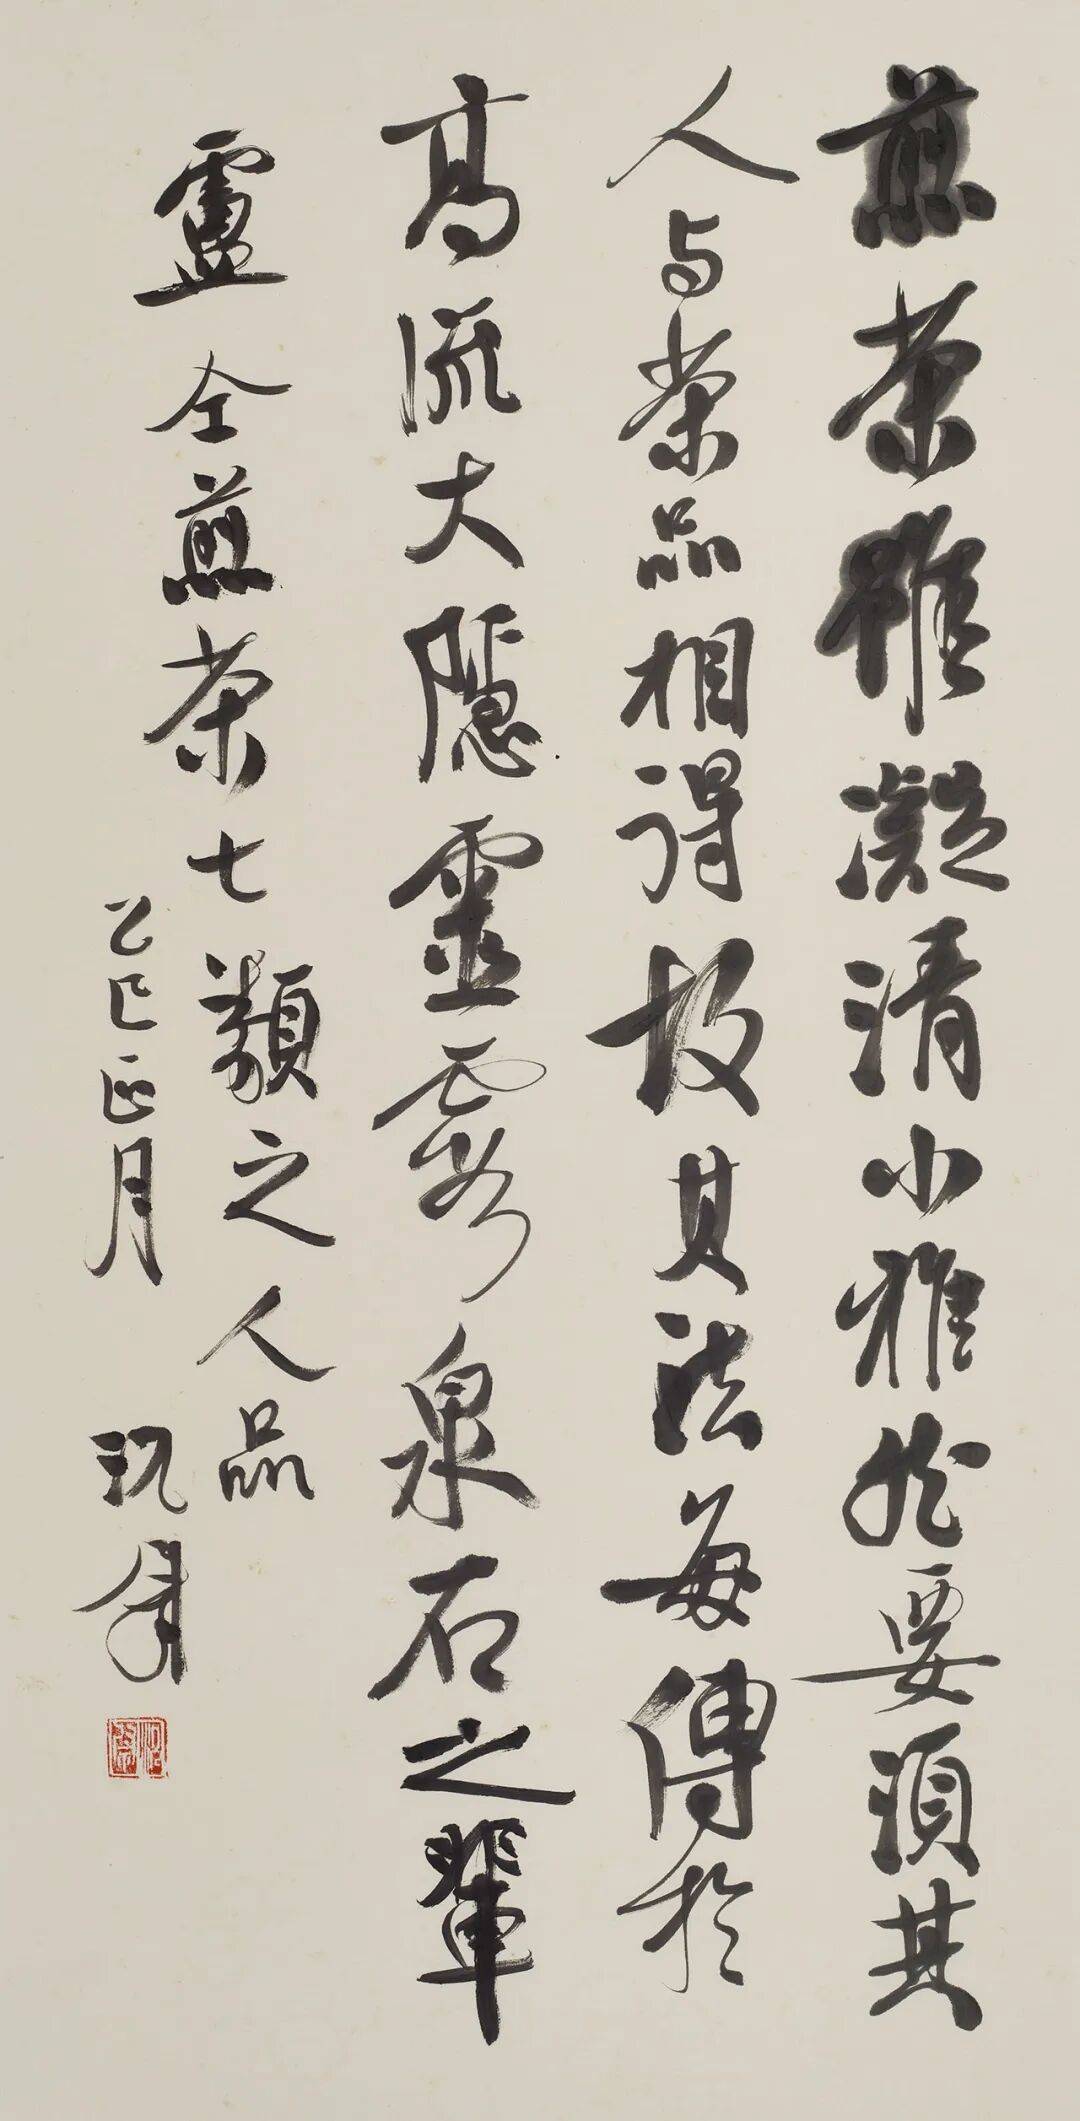 煎茶雖凝清小雅然要須其
人与茶品相得故其法每傳於
高流大隱靈霞泉石之輩
盧仝煎茶七類之人品
乙巳正月